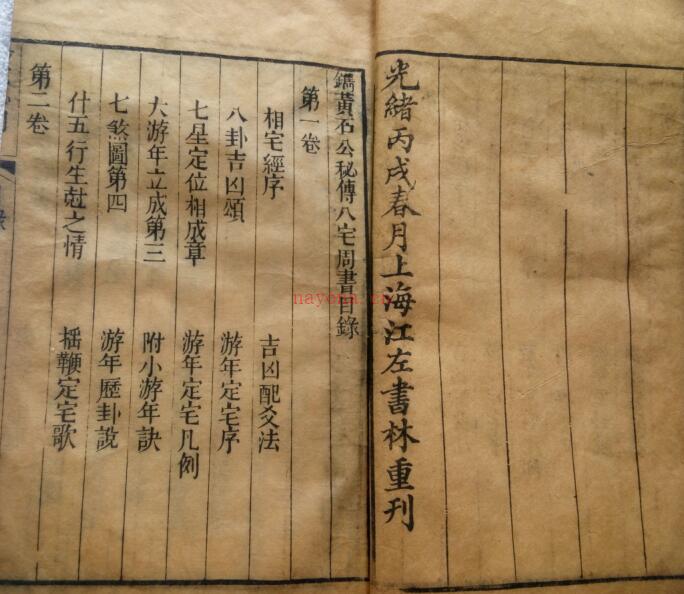 光緒丙戌春月上海江左書林重刊
鐫黃石公秘傳八宅周書目錄
第一卷
相宅經序 吉凶配爻法
八卦吉凶頌 游年定宅序
七星定位相成章 游年定宅凡例
大游年立成第三 附小游年訣
七煞圖第四 游年歷卦說
什五行生尅之情 搖鞭定宅歌
第二卷